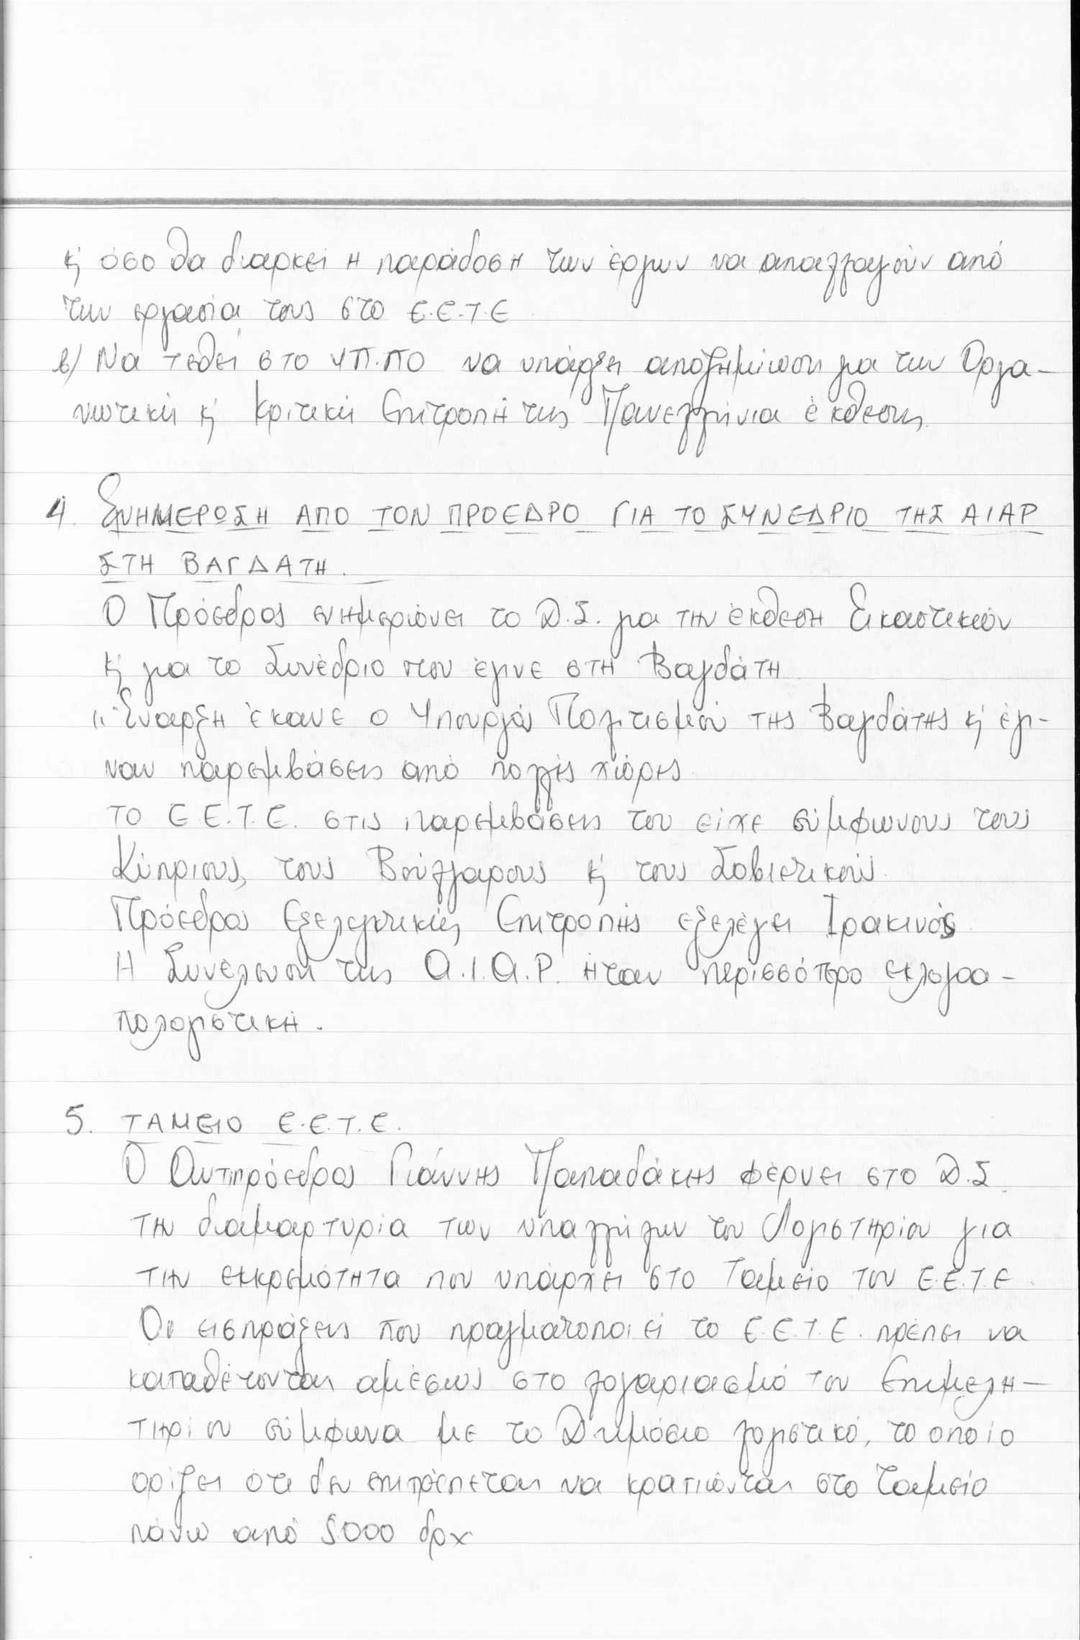 κ' όσο θα διαρκεί η παράδοση των έργων να απαλλαγούν από
την εργασία τους στο Ε.Ε.Τ.Ε
β) Να τεθεί στο ΥΠ.ΠΟ να υπάρξει αποζημίωση για την Οργα-
νωτική κ' Κριτική Επιτροπή της Πανελλήνια έκθεσης.
4. ΕΝΗΜΕΡΩΣΗ ΑΠΟ ΤΟΝ ΠΡΟΕΔΡΟ ΓΙΑ ΤΟ ΣΥΝΕΔΡΙΟ ΤΗΣ ΑΙΑΡ
ΣΤΗ ΒΑΓΔΑΤΗ.
Ο Πρόεδρος ενημερώνει το Δ.Σ. για την έκθεση Εικαστικών
κ' για το Συνέδριο που έγινε στη Βαγδάτη.
Έναρξη έκανε ο Υπουργός Πολιτισμού της Βαγδάτης κ' έγι-
ναν παρεμβάσεις από πολλές χώρες.
το Ε.Ε.Τ.Ε. στις παρεμβάσεις του είχε σύμφωνους τους
Κύπριους, τους Βούλγαρους κ' τους Σοβιετικούς.
Πρόεδρος Εξελεγκτικής Επιτροπής εξελέγει Ιρακινός
Η Συνέλευση της Α.Ι.Α.Ρ. ήταν περισσότερο εκλογοα-
πολογιστική.
5. ΤΑΜΕΙΟ Ε.Ε.Τ.Ε.
Ο Αντιπρόεδρος Γιάννης Παπαδάκης φέρνει στο Δ.Σ.
την διαμαρτυρία των υπαλλήλων του Λογιστηρίου για
την εκκρεμότητα που υπάρχει στο Ταμείο του Ε.Ε.Τ.Ε
Οι εισπράξεις που πραγματοποιεί το Ε.Ε.Τ.Ε. πρέπει να
καταθέτονται αμέσως στο λογαριασμό του Επιμελη-
τηρίου σύμφωνα με το Δημόσιο λογιστικό, το οποίο
ορίζει ότι δεν επιτρέπεται να κρατιώνται στο Ταμείο
πάνω από 5000 δρχ